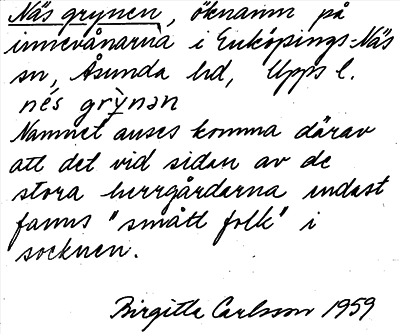 Näs grynen, öknamn på
innevånarna i Enköpings-Näs
sn, Åsunda hd, Upps l.
nés grỳnən
Namnet anses komma därav
att det vid sidan av de
stora herrgårdarna endast
fanns "smått folk" i
socknen.
Birgitta Carlsson 1959